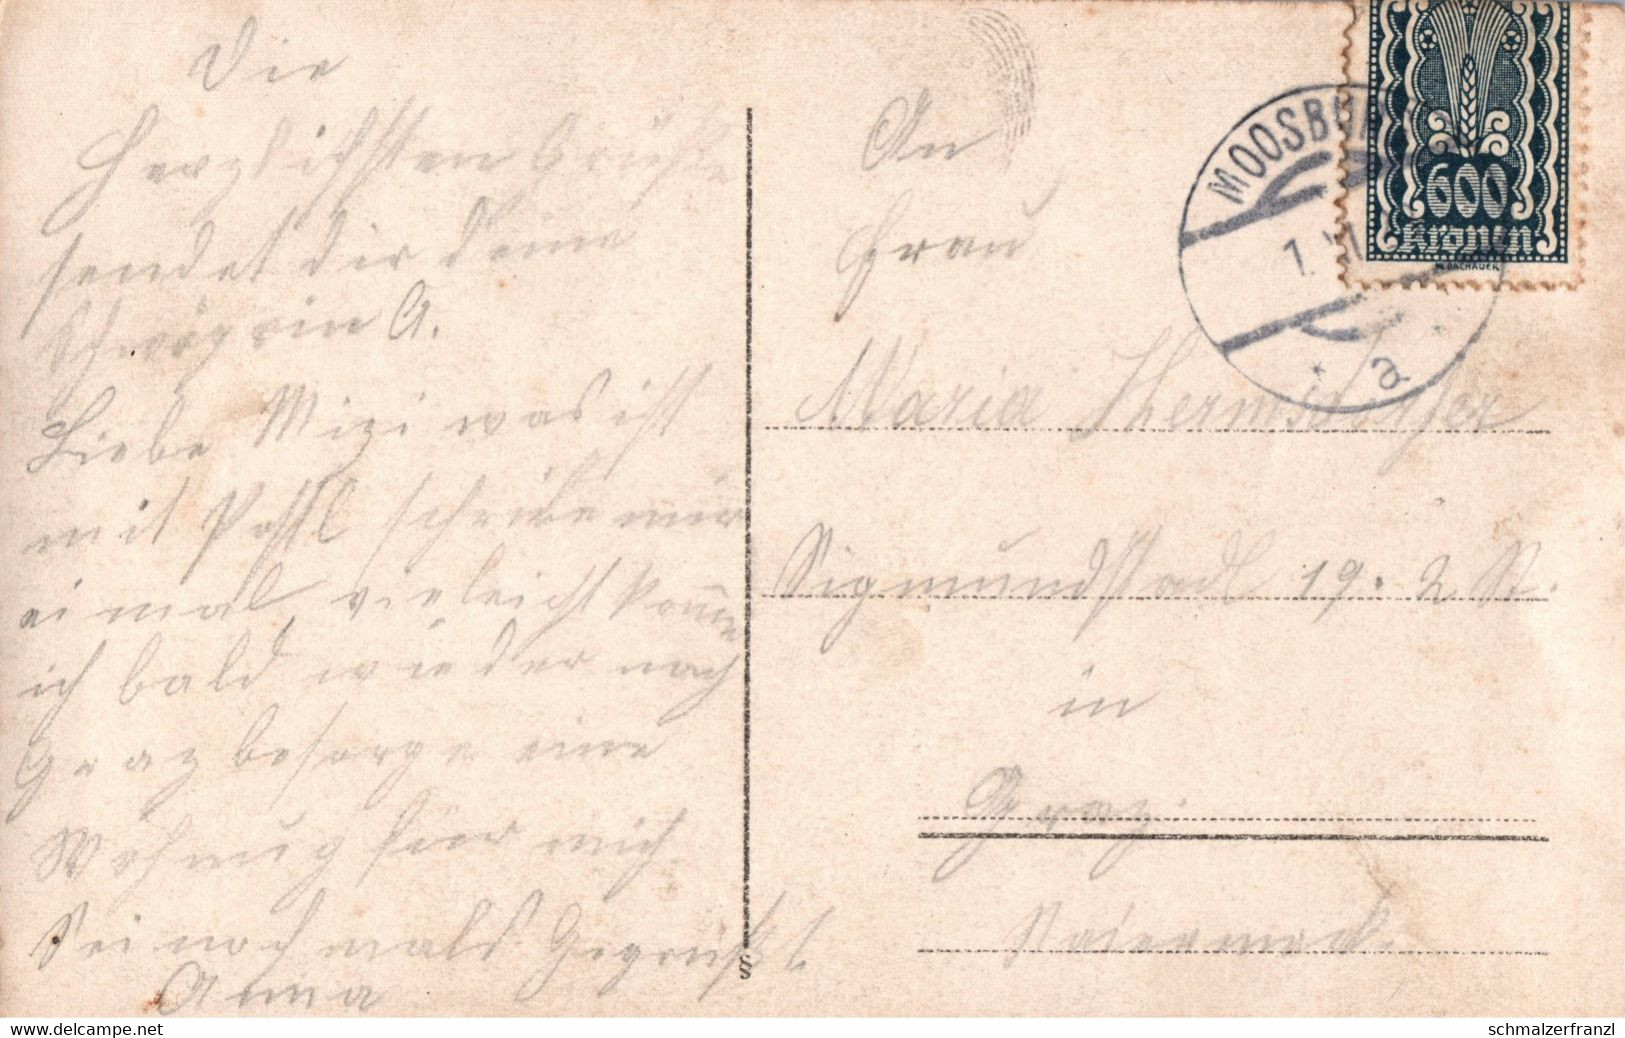 Die
Herzlichsten Grüße
sendet dir deine
Schwägrin A.
Liebe Mizi was ist
mit Postl schreibe mir
einmal vieleicht komme
ich bald wieder nach
Graz besorge eine
Wohnug für mich.
Sei nochmals Gegrüßt
Anna
An
Frau
Maria
Sigmundstadl 19. 2 St.
in
Graz.
Steiermark.
MOOSBURG
1. XI.
* a *
600
Kronen
W. DACHAUER
§
www.delcampe.net
schmalzerfranzl